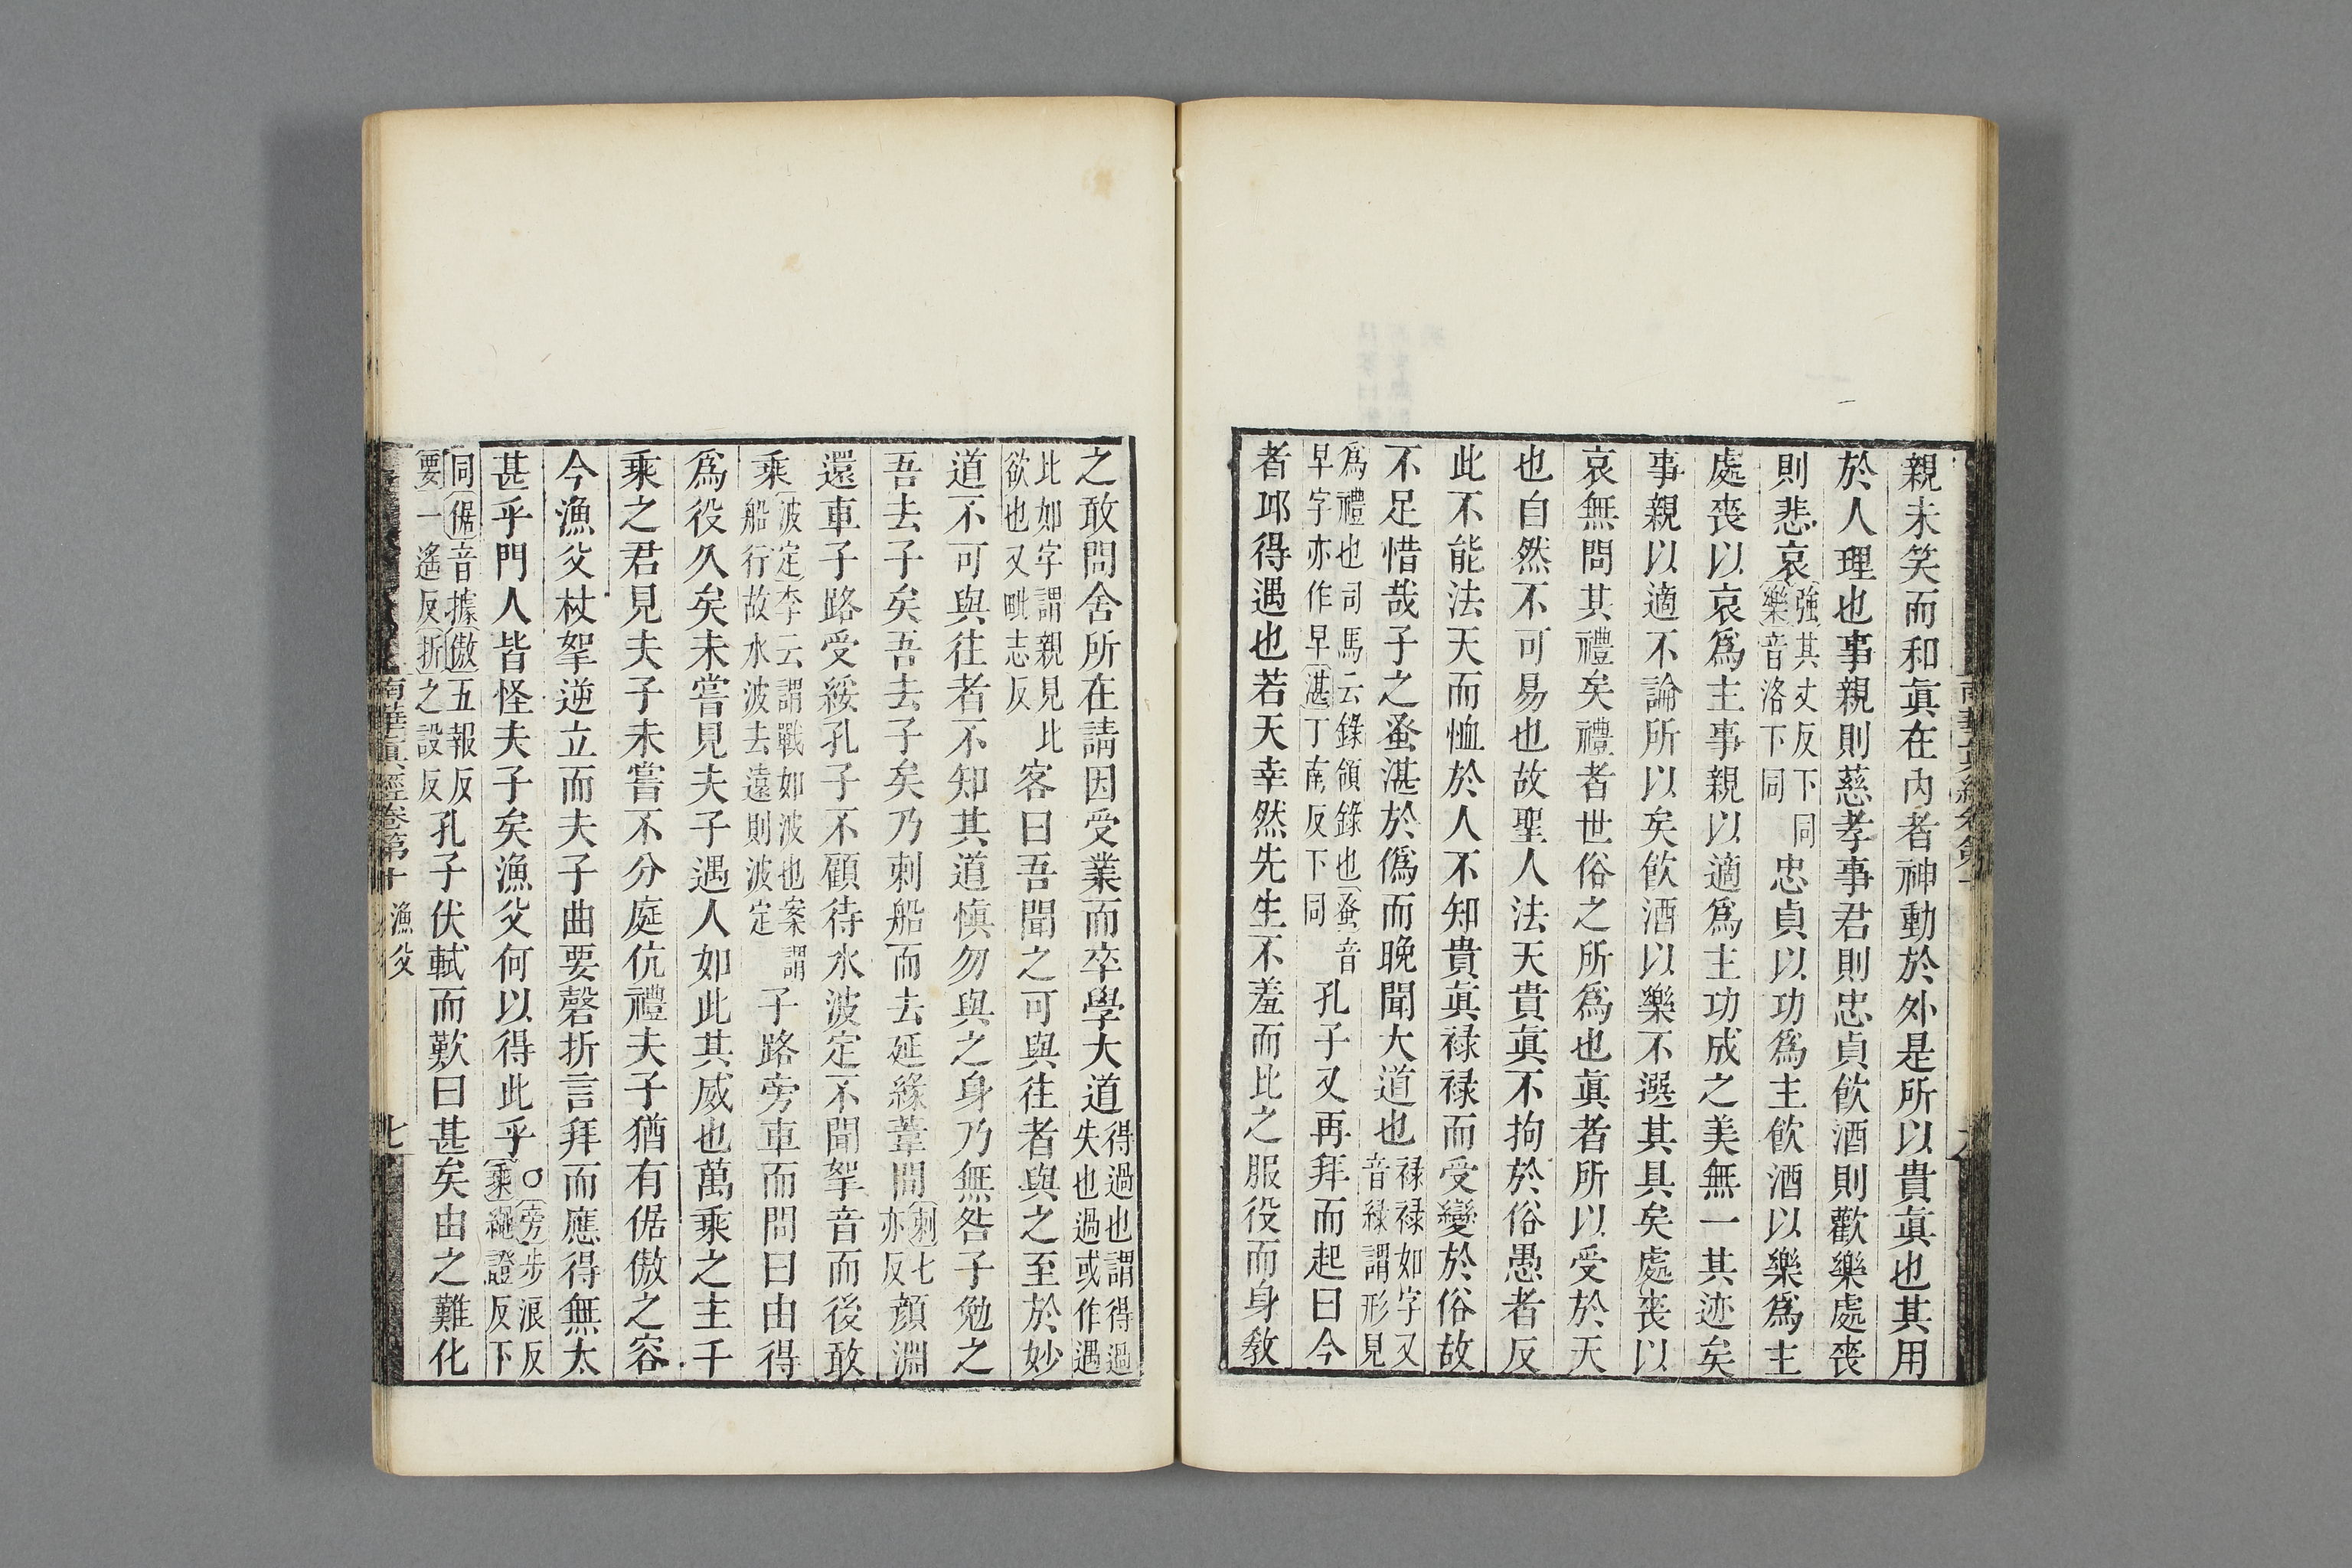 親未笑而和眞在内者神動於外是所以貴眞也其用
於人理也事親則慈孝事君則忠貞飲酒則歡樂處喪
則悲哀強其丈反下同樂音洛下同忠貞以功爲主飲酒以樂爲主
處喪以哀爲主事親以適爲主功成之美無一其迹矣
事親以適不論所以矣飲酒以樂不選其具矣處喪以
哀無問其禮矣禮者世俗之所爲也眞者所以受於天
也自然不可易也故聖人法天貴眞不拘於俗愚者反
此不能法天而恤於人不知貴眞祿祿而受變於俗故
不足惜哉子之蚤湛於僞而晚聞大道也祿祿如字又音綠謂形見
爲禮也司馬云錄領錄也蚤音早字亦作早湛丁南反下同孔子又再拜而起曰今
者丘得遇也若天幸然先生不羞而比之服役而身敎
之敢問舍所在請因受業而卒學大道得過也謂得過失也過或作遇
比如字謂親見比欲也又毗志反客曰吾聞之可與往者與之至於妙
道不可與往者不知其道愼勿與之身乃無咎子勉之
吾去子矣吾去子矣乃刺船而去延緣葦間刺七亦反顏淵
還車子路受綏孔子不顧待水波定不聞挐音而後敢
乘波定李云謂戰如波也案謂船行故水波去遠則波定子路旁車而問曰由得
爲役久矣未嘗見夫子遇人如此其威也萬乘之主千
乘之君見夫子未嘗不分庭伉禮夫子猶有倨傲之容
今漁父杖挐逆立而夫子曲要磬折言拜而應得無太
甚乎門人皆怪夫子矣漁父何以得此乎○旁步浪反乘繩證反下
同倨音據傲五報反要一遙反折之設反孔子伏軾而歎曰甚矣由之難化
南華眞經卷第十 漁父 七